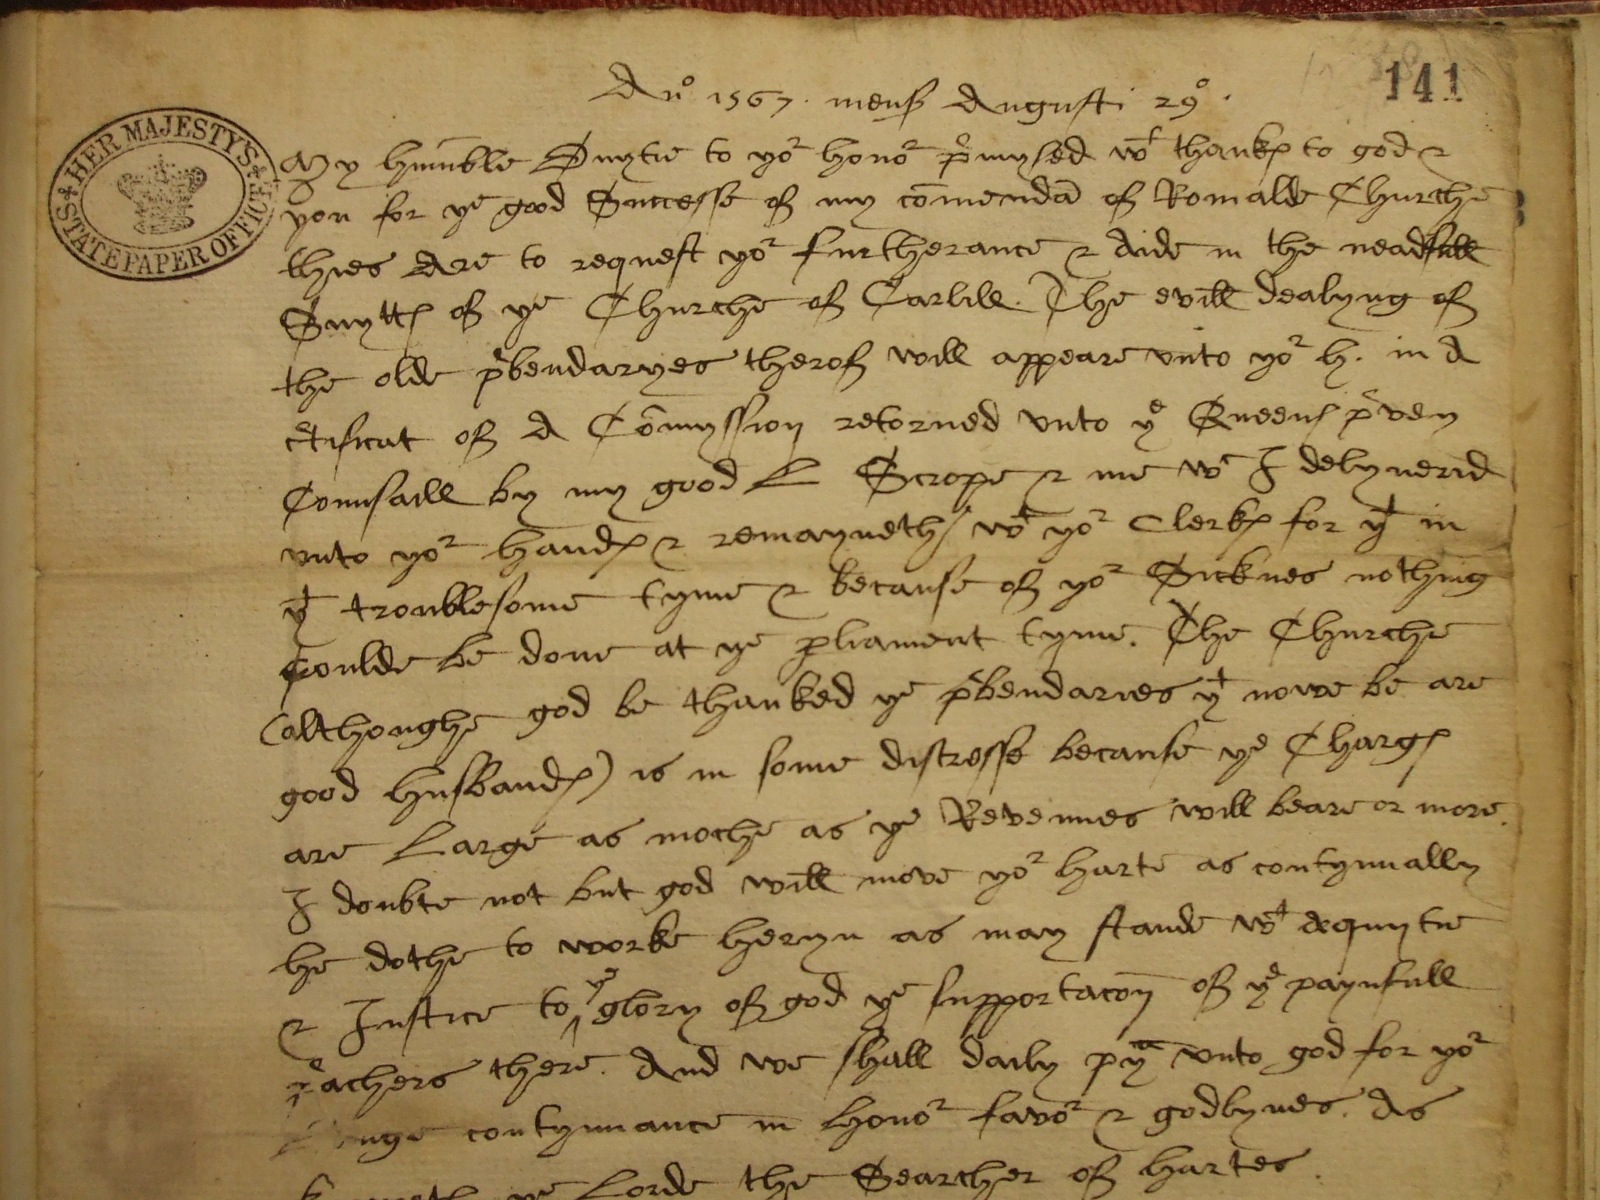 141
HER MAJESTY'S
STATE PAPER OFFICE
Ano 1567. mens Augusti 29o.
My humble Duytie to yor honor pmysed wt thanks to god &
you for ye good Successe of my comenda of Romalde Churche
thies Are to request yor furtherance & Aide in the neadfull
Suytts of ye Churche of Carlill. The evill dealyng of
the olde pbendaryes therof will appeare unto yor h. in A
ctificat of A Comyssion retorned unto ye Queens pvey
Counsaill by my good L Scrope & me wc I delyuerid
unto yor hands & remayneth wt yor Clerks for yt in
yt troublesome tyme & because of yor Sicknes nothing
Coulde be done at ye pliament tyme. The Churche
(althoughe god be thanked ye pbendaries yt nowe be are
good husbands) is in some distresse because ye Chargs
are Large as moche as ye Revenues will beare or more.
I doubte not but god will move yor harte as contynually
he dothe to worke heryn as may stande wt æquytie
& Justice to ye glory of god ye supportacon of ye paynfull
pachers there. And we shall daily pray unto god for yor
contynuance in honor favor & godlynes. As
ye Lorde the Searcher of hartes.